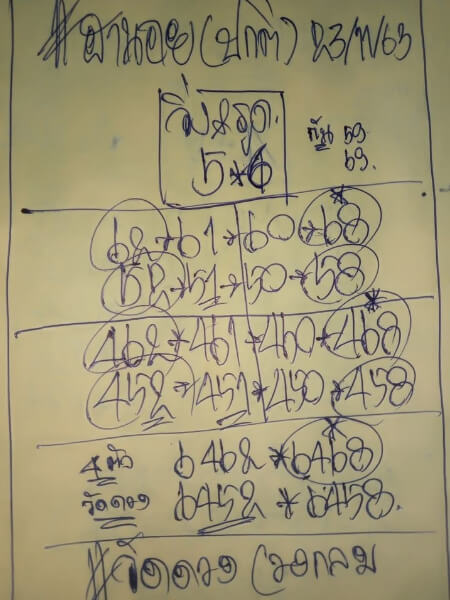 #ฮานอย (ปกติ) 23/11/63
วิ่งรูด.
5*6
กัน 59
69.
62*61*60*68
52*51*50*58
462*461*460*468
452*451*450*458
4 ตัว 6462*6468
วัดดวง 6452*6458.
#วัดดวง